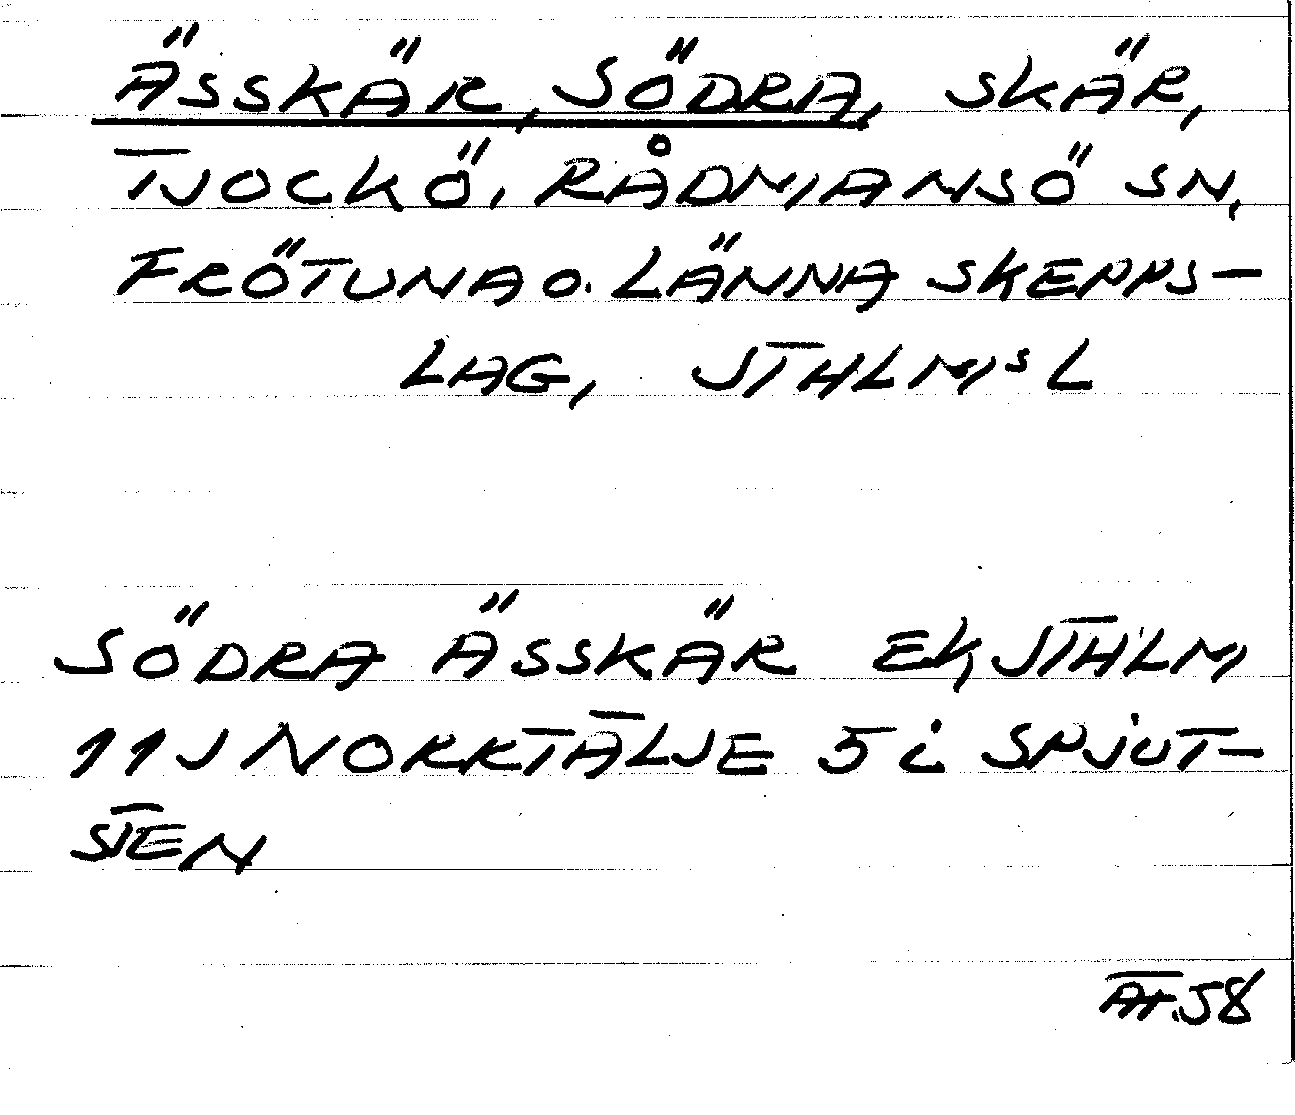 ÄSSKÄR, SÖDRA, SKÄR,
TJOCKÖ, RÅDMANSÖ SN,
FRÖTUNA O. LÄNNA SKEPPS-
LAG, STHLMS L
SÖDRA ÄSSKÄR EK, STHLM
11J NORRTÄLJE 5 i SPJUT-
STEN